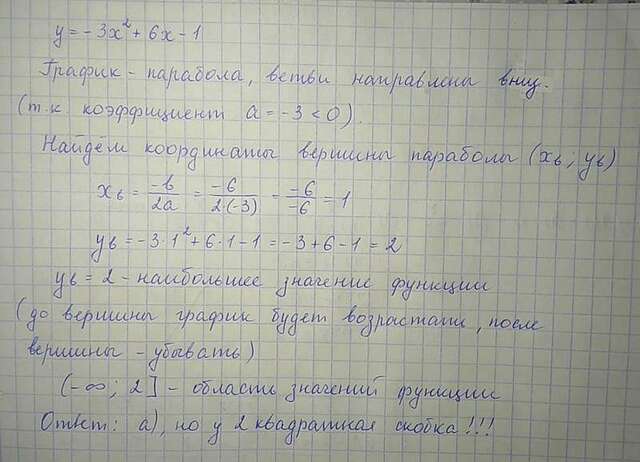 y = -3x² + 6x - 1
График - парабола, ветви направлены вниз.
(т.к. коэффициент a = -3 < 0).
Найдём координаты вершины параболы (xв; yв)
xв = -b/2a = -6/2·(-3) = -6/-6 = 1
yв = -3·1² + 6·1 - 1 = -3 + 6 - 1 = 2
yв = 2 - наибольшее значение функции
(до вершины график будет возрастать, после
вершины - убывать)
(-∞; 2] - область значений функции
Ответ: а), но у 2 квадратная скобка!!!